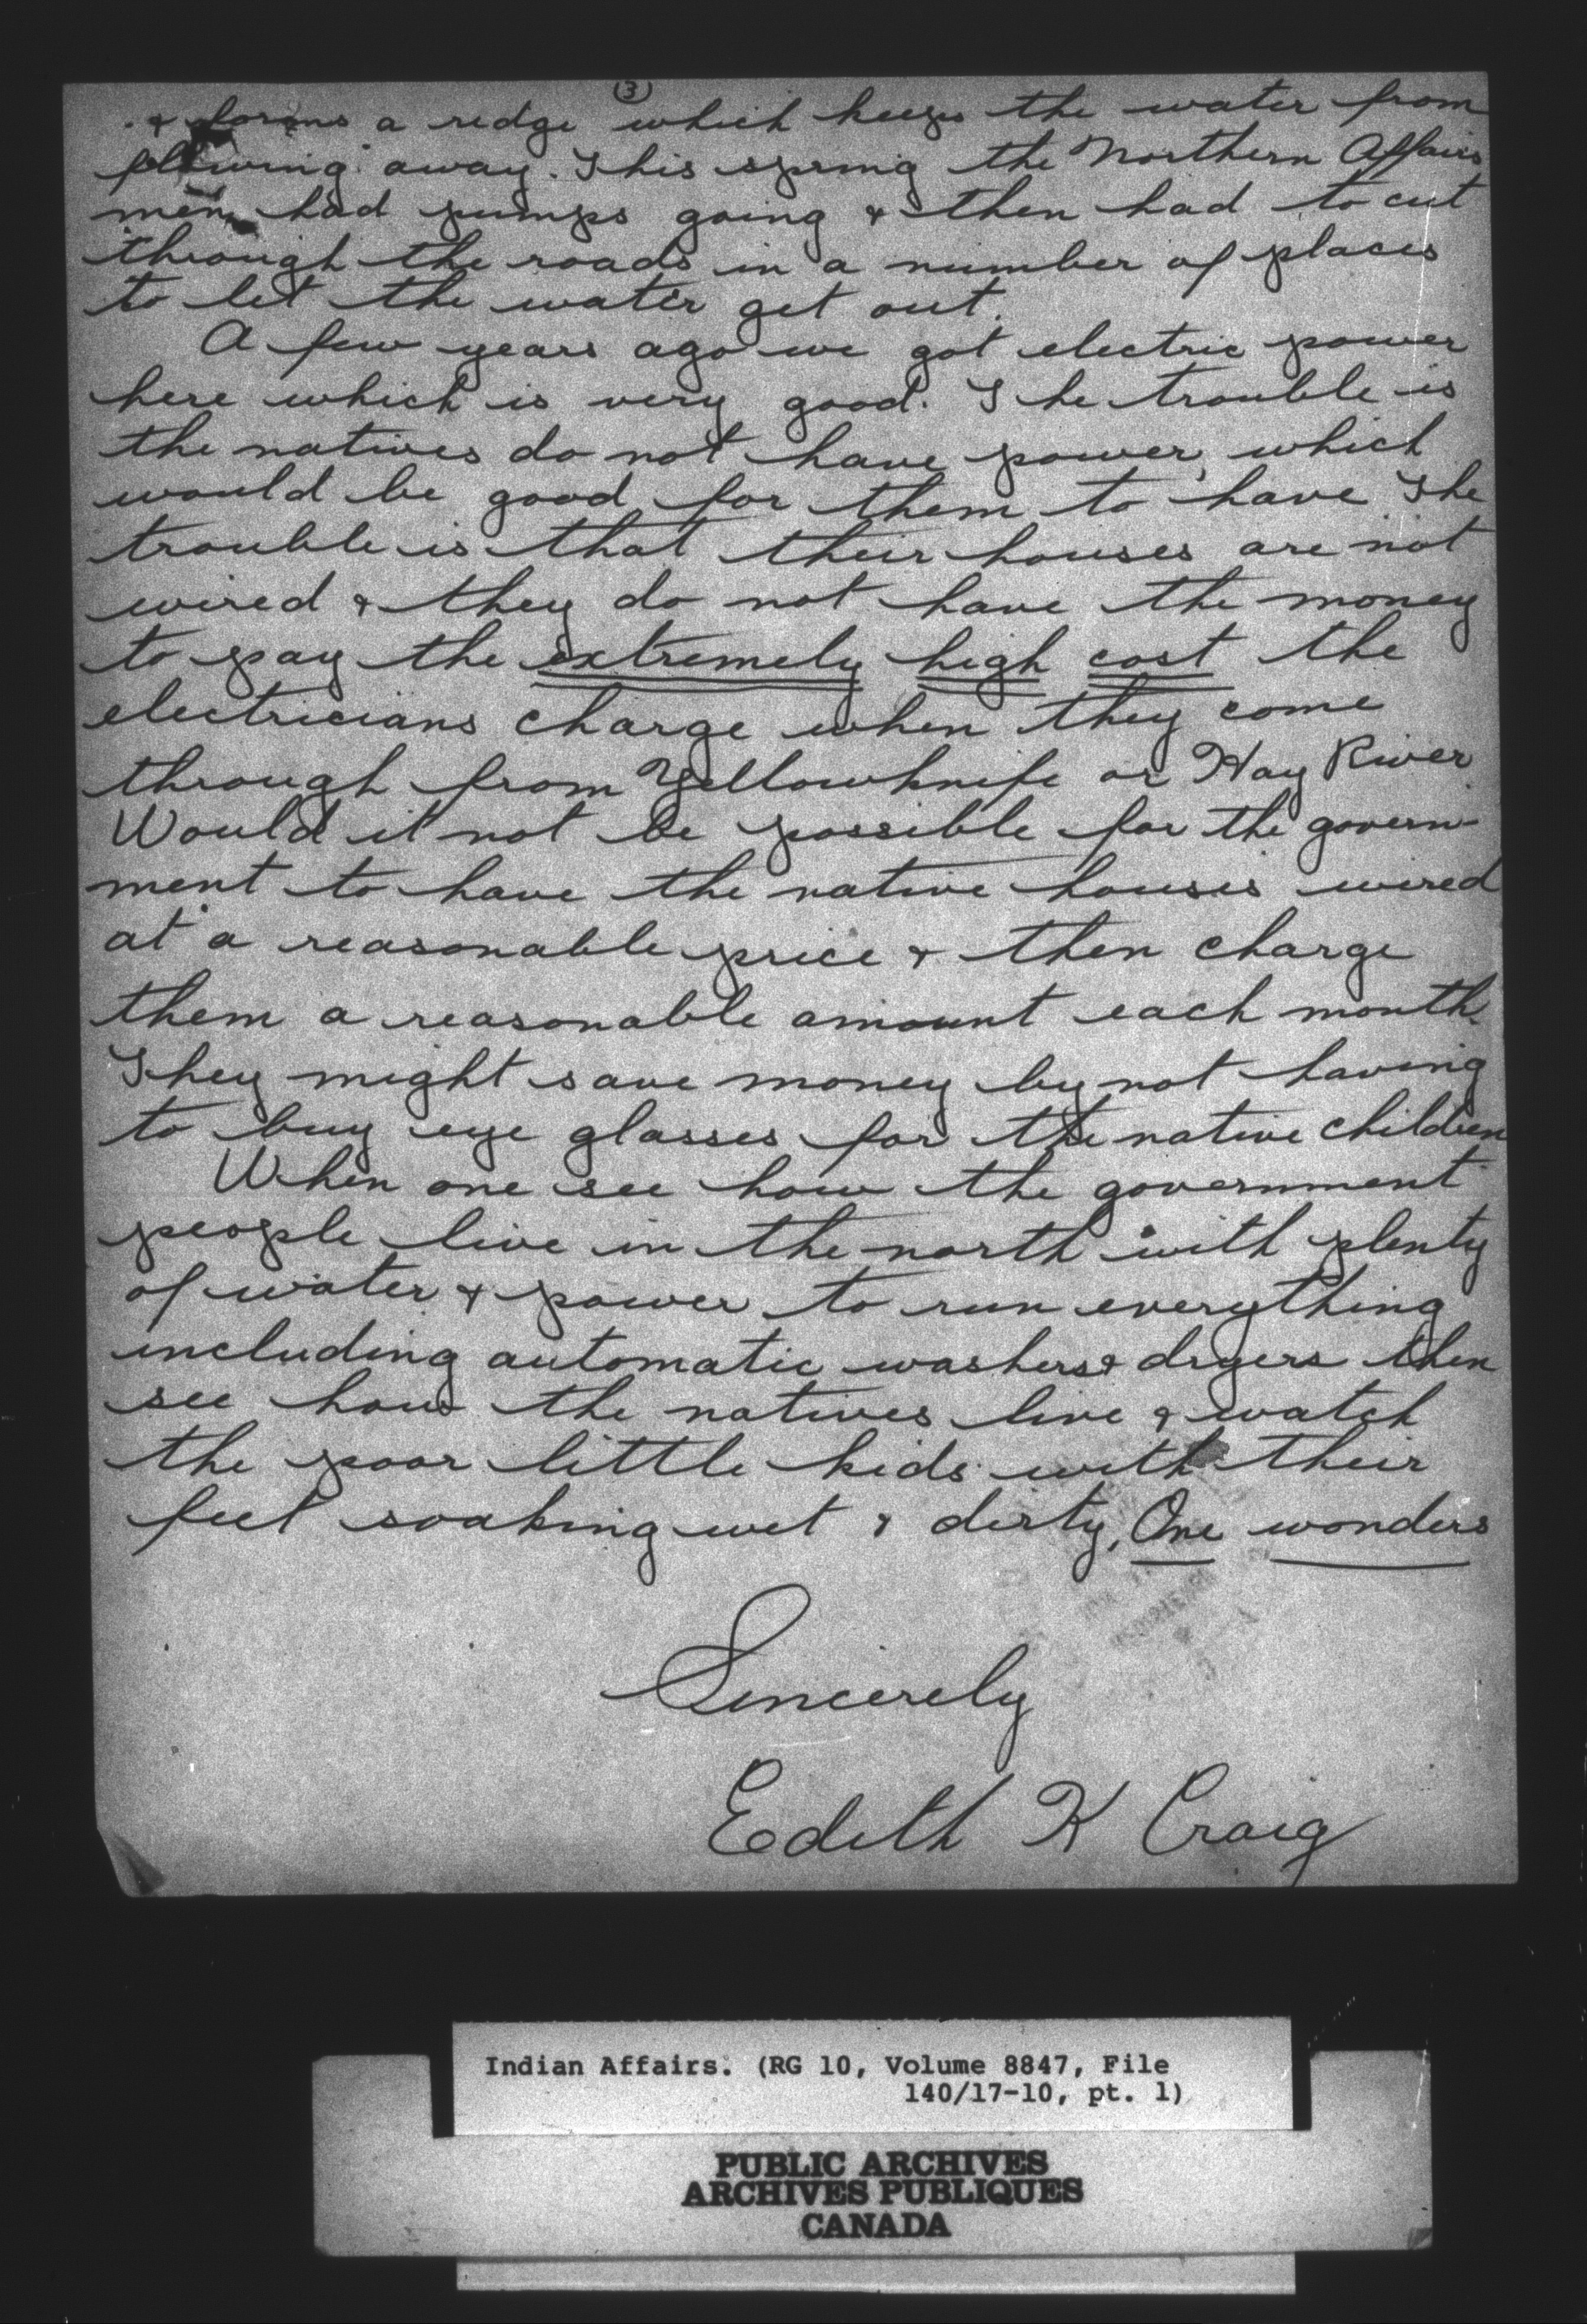 3
& forms a ridge which keeps the water from
flowing away. This spring the Northern Affairs
men had pumps going & then had to cut
through the roads in a number of places
to let the water get out.
A few years ago we got electric power
here which is very good. The trouble is
the natives do not have power, which
would be good for them to have The
trouble is that their houses are not
wired & they do not have the money
to pay the extremely high cost the
electricians charge when they come
through from Yellowknife or Hay River
Would it not be possible for the govern-
ment to have the native houses wired
at a reasonable price & then charge
them a reasonable amount each month.
They might save money by not having
to buy eye glasses for the native children
When one see how the government
people live in the north with plenty
of water & power to run everything
including automatic washers & dryers then
see how the natives live & watch
the poor little kids with their
feet soaking wet & dirty, One wonders
Sincerely
Edith K Craig
Indian Affairs. (RG 10, Volume 8847, File
140/17-10, pt. 1)
PUBLIC ARCHIVES
ARCHIVES PUBLIQUES
CANADA